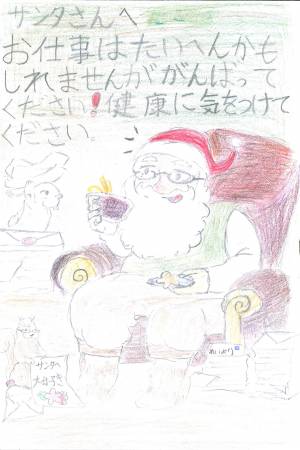 サンタさんへ
お仕事はたいへんかも
しれませんががんばって
ください!健康に気をつけて
ください。
サンタへ
大好き